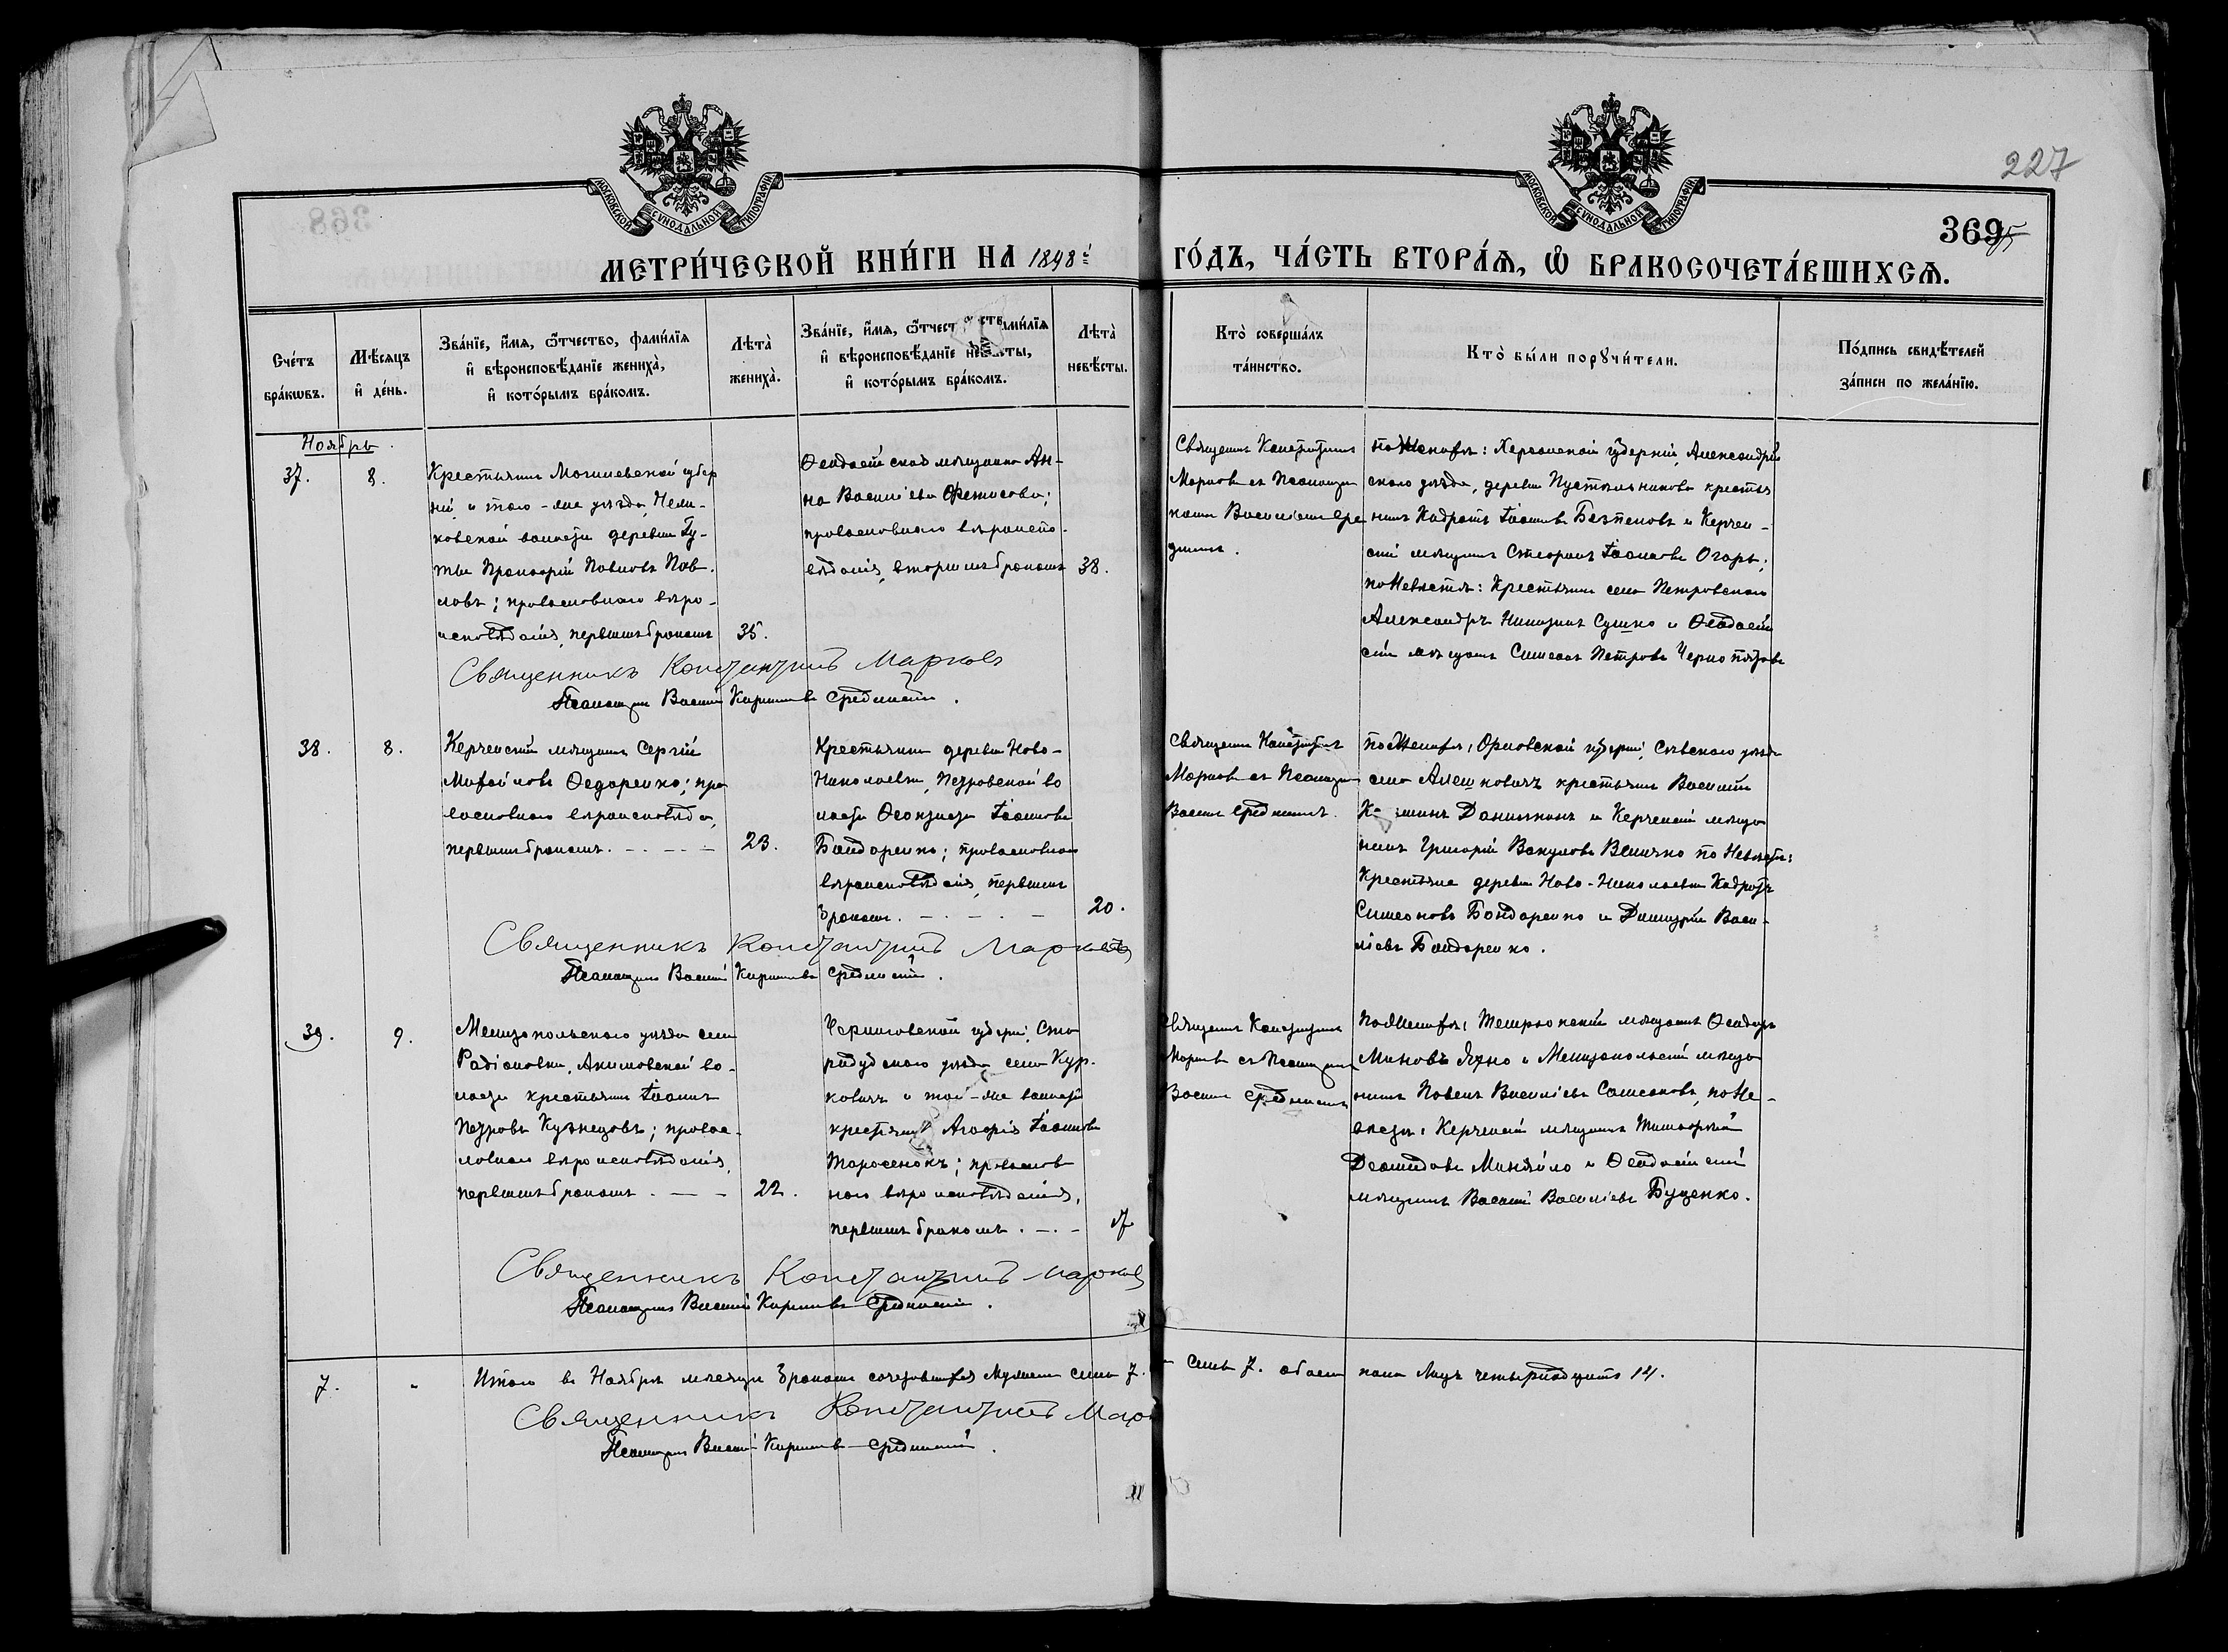 227
369
МОСКОВСКОЙ СѴНОДАЛЬНОЙ ТИПОГРАФІИ
МОСКОВСКОЙ СѴНОДАЛЬНОЙ ТИПОГРАФІИ
МЕТРИ́ЧЕСКОЙ КНИ́ГИ НА 1898й ГО́ДЪ, ЧА́СТЬ ВТОРА́Ѧ, Ѽ БРАКОСОЧЕТА́ВШИХСѦ.
Сче́тъ бра́кѡвъ.
Мѣ́сяцъ и҆ де́нь.
Зва́нїе, и҆́мя, ѻ҆́тчество, фами́лїя
и҆ вѣроисповѣ́данїе жениха̀,
и҆ кото́рымъ бра́комъ.
Лѣта̀ жениха̀.
Зва́нїе, и҆́мя, фами́лїя
и҆ вѣроисповѣ́данїе невѣ́сты,
и҆ кото́рымъ бра́комъ.
Лѣта̀ невѣ́сты.
Кто̀ соверша́лъ та́инство.
Кто̀ бы́ли порꙋчи́тели.
По́дпись свидѣ́телей
за́писи по жела́нїю.
Ноябрь.
37.
8.
Крестьянинъ Могилевской губер
ніи и того-же уѣзда,
волости деревни Гу-
ты Павловъ Пав-
ловъ; православнаго вѣро-
исповѣданія, первымъ бракомъ
35.
Ѳеодосійская мѣщанка Ан-
на Васильева Фетисова;
православнаго вѣроиспо-
вѣданія, вторымъ бракомъ
38.
Священникъ Константинъ
Марковъ съ Псаломщи
комъ Василіемъ Сре
днимъ.
по Женихѣ: Херсонской губерніи, Александрій
скаго уѣзда, деревни крестья
нинъ Кодратъ Іоанновъ и Керчен-
скій мѣщанинъ Іоанновъ Огарь;
по Невѣстѣ: Крестьянинъ села Петровскаго
Александръ Никитинъ Сушко и Ѳеодосій
скій мѣщанинъ Симеонъ Петровъ
Священникъ Константинъ Марковъ
Псаломщикъ Василій Кириловъ
38.
8.
Керченскій мѣщанинъ Сергій
Михаиловъ Ѳедоренко; пра
вославнаго вѣроисповѣда.,
первымъ бракомъ.
23.
Крестьянка деревни Ново-
Николаевки, Петровской во
лости Іоаннова
Бондаренко; православнаго
вѣроисповѣданія, первымъ
бракомъ.
20.
Священникъ Константинъ
Марковъ съ Псаломщи
Василіемъ
по Женихѣ: Орловской губерніи, Сѣвскаго уѣзда
села крестьянинъ Василій
Данилкинъ и Керченскій мѣща
нинъ Григорій Вакуловъ Величко по Невѣстѣ:
Крестьяне деревни Ново-Николаевки Кодратъ
Симеоновъ Бондаренко и Димитрій Васи-
ліевъ Бондаренко.
Священникъ Константинъ Марковъ
Псаломщикъ Василій Кириловъ
39.
9.
Мелитопольскаго уѣзда села
Радіоновки, Акимовской во-
лости крестьянинъ Іоаннъ
Петровъ Кузнецовъ; правос-
лавнаго вѣроисповѣданія,
первымъ бракомъ.
22.
Черниговской губерніи, Ста
родубскаго уѣзда села Кур-
ковичъ и той-же волости
крестьянка Агафія Іоаннова
Тарасенокъ; православ
наго вѣроисповѣданія,
первымъ бракомъ.
17
Священникъ Константинъ
Марковъ съ Псаломщикомъ
Василіемъ
по Женихѣ: Темрюкскій мѣщанинъ Ѳеодоръ
Миновъ и Мелитопольскій мѣща
нинъ Павелъ Василіевъ Самсоновъ, по Не-
вѣстѣ: Керченскій мѣщанинъ Тимоѳей
Миняйло и Ѳеодосійскій
мѣщанинъ Василій Василіевъ Буценко.
Священникъ Константинъ Марковъ
Псаломщикъ Василій Кириловъ
7.
Итого въ Ноябрѣ мѣсяцѣ бракомъ сочетавшихся Мужеска семь 7.
семь 7. обоего пола Лицъ четырнадцать 14.
Священникъ Константинъ
Псаломщикъ Василій Кириловъ